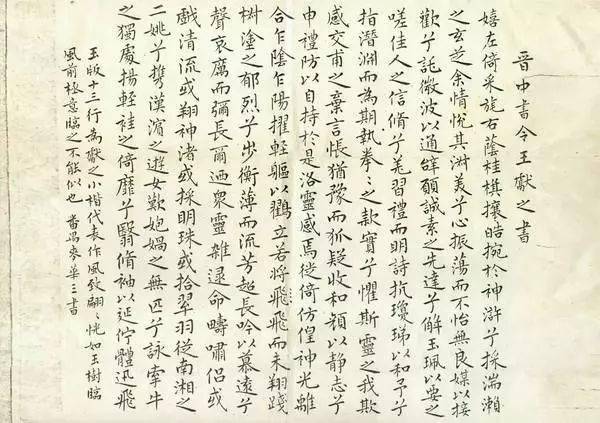 晉中書令王獻之書
嬉左倚采旄右蔭桂棋攘皓捥於神滸兮採湍瀨
之玄芝余情悅其淑美兮心振蕩而不怡無良媒以接
歡兮託微波以通辭願誠素之先達兮解玉珮以要之
嗟佳人之信脩兮羌習禮而明詩抗瓊珶以和予兮
指潛淵而為期執拳〻之款實兮懼斯靈之我欺
感交甫之棄言悵猶豫而狐疑收和顏以静志兮
申禮防以自持於是洛靈感焉徙倚仿偟神光離
合乍陰乍陽擢輕軀以鶴立若將飛飛而未翔踐
椒塗之郁烈兮步衡薄而流芳超長吟以慕遠兮
聲哀厲而彌長爾迺衆靈雜遝命疇嘯侶或
戲清流或翔神渚或採明珠或拾翠羽從南湘之
二姚兮攜漢濱之遊女歎匏媧之無匹兮詠牽牛
之獨處揚輕袿之倚靡兮翳脩袖以延佇體迅飛
玉版十三行為獻之小楷代表作風致翩〻恍如玉樹臨
風前極意臨之不能似也 番禺麥華三書